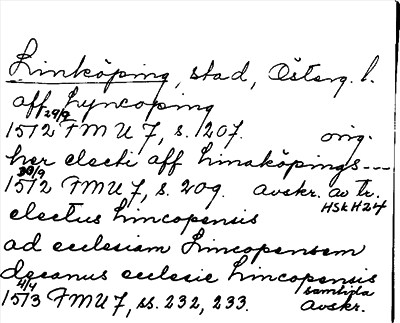 Linköping, stad, Österg. l.
aff Lyncoping
29/9
1512 FMU 7, s. 207. orig.
her electi aff Linaköpings---
30/9
1512 FMU 7, s. 209. avskr. av tr.
HSK H24
electus Lincopensis
ad ecclesiam Lincopensem
decanus ecclesie Lincopensis
4/4 samtida
1513 FMU 7, ss. 232, 233. avskr.